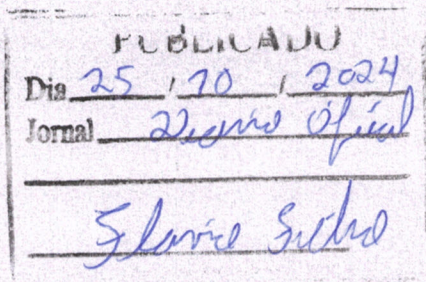 PUBLICADO
Dia 25 / 10 / 2024
Jornal Diario Oficial
Flavia Silva